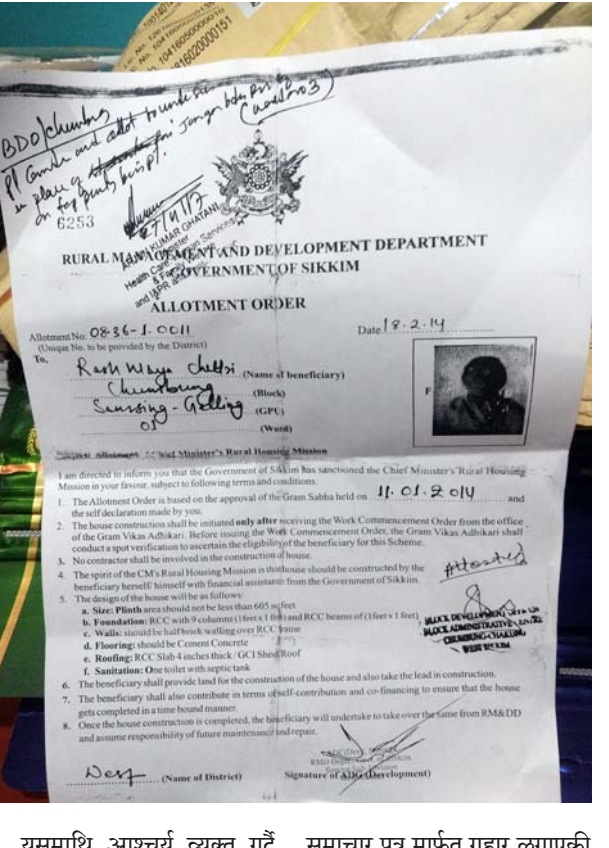 10416050000010
816020000151
BDO/Chumbong
6253
27/11/17
ARJUN KUMAR GHATANI
Minister
Health Care
& Family
Services
and I&PR
RURAL MANAGEMENT AND DEVELOPMENT DEPARTMENT
GOVERNMENT OF SIKKIM
ALLOTMENT ORDER
Allotment No. 08-36-1.0011
Date 18.2.14
(Unique No. to be provided by the District)
To,
Rash Maya Chettri (Name of beneficiary)
Chumbong (Block)
Samsing - Gelling (GPU)
01 (Ward)
F
Subject: Allotment Chief Minister's Rural Housing Mission
I am directed to inform you that the Government of Sikkim has sanctioned the Chief Minister's Rural Housing
Mission in your favour, subject to following terms and conditions:
1. The Allotment Order is based on the approval of the Gram Sabha held on 11.01.2014 and
the self declaration made by you.
2. The house construction shall be initiated only after receiving the Work Commencement Order from the office
of the Gram Vikas Adhikari. Before issuing the Work Commencement Order, the Gram Vikas Adhikari shall
conduct a spot verification to ascertain the eligibility of the beneficiary for this Scheme.
3. No contractor shall be involved in the construction of house.
4. The spirit of the CM's Rural Housing Mission is that house should be constructed by the
beneficiary herself/ himself with financial assistance from the Government of Sikkim.
Attested
5. The design of the house will be as follows:
a. Size: Plinth area should not be less than 605 sq feet
b. Foundation: RCC with 9 columns (1feet x 1 feet) and RCC beams of (1feet x 1 feet)
c. Walls: should be half brick walling over RCC frame
d. Flooring: should be Cement Concrete
e. Roofing: RCC Slab 4 inches thick / GCI Shed Roof
f. Sanitation: One toilet with septic tank
BLOCK DEVELOPMENT
BLOCK ADMINISTRATIVE CENTRE
CHUMBUNG-CHAKUNG
WEST SIKKIM
6. The beneficiary shall provide land for the construction of the house and also take the lead in construction.
7. The beneficiary shall also contribute in terms of self-contribution and co-financing to ensure that the house
gets completed in a time bound manner.
8. Once the house construction is completed, the beneficiary will undertake to take over the same from RM&DD
and assume responsibility of future maintenance and repair.
West (Name of District)
Signature of ADC (Development)
यसमाथि आश्चर्य व्यक्त गर्दै
समाचार पत्र मार्फत गुहार लगाएकी